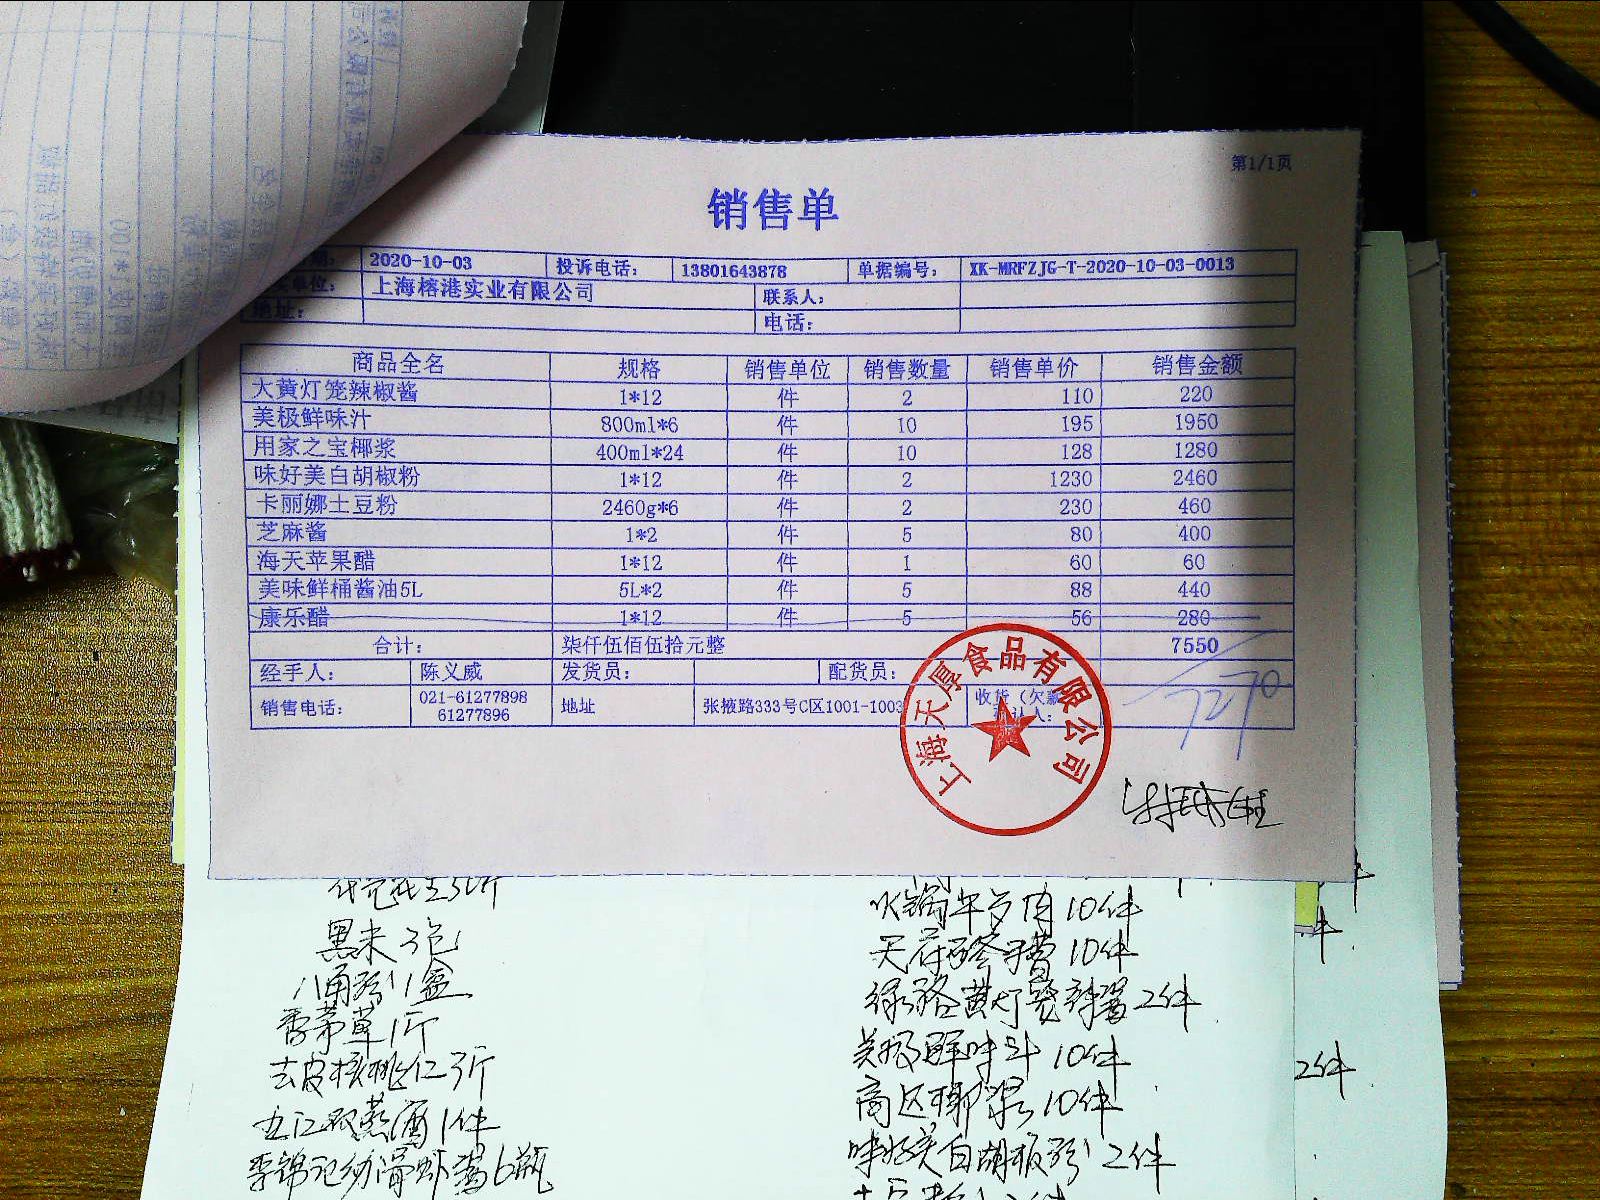 第1/1页
销售单
2020-10-03 投诉电话： 13801643878 单据编号： XK-MRFZJG-T-2020-10-03-0013
单位： 上海榕港实业有限公司 联系人：
地址： 电话：
商品全名 规格 销售单位 销售数量 销售单价 销售金额
大黄灯笼辣椒酱 1*12 件 2 110 220
美极鲜味汁 800ml*6 件 10 195 1950
用家之宝椰浆 400ml*24 件 10 128 1280
味好美白胡椒粉 1*12 件 2 1230 2460
卡丽娜土豆粉 2460g*6 件 2 230 460
芝麻酱 1*2 件 5 80 400
海天苹果醋 1*12 件 1 60 60
美味鲜桶酱油5L 5L*2 件 5 88 440
康乐醋 1*12 件 5 56 280
合计： 柒仟伍佰伍拾元整 7550
经手人： 陈义威 发货员： 配货员：
7270
销售电话： 021-61277898 61277896 地址 张掖路333号C区1001-1003 收货（欠款 认人：
上海天厚食品有限公司
黑米3包
八角粉1盒
香茅草1斤
去皮核桃仁3斤
九江双蒸酒1件
李锦记幼滑虾酱6瓶
火锅年万肉10件
10件
黄灯笼辣酱2件
美极鲜味汁10件
椰浆10件
味好美白胡椒粉2件
件
2件